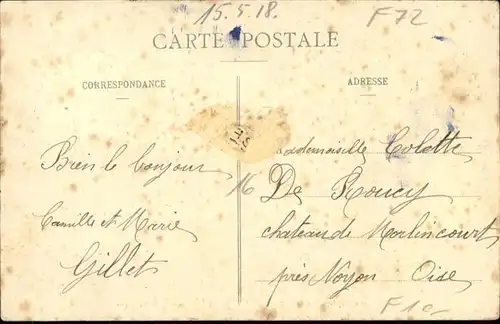 15.5.18.
F72
CARTE POSTALE
CORRESPONDANCE
ADRESSE
Bien le bonjour
Camille et Marie
Gillet
16
Mademoiselle Colette
De Roucy
chateau de Morlincourt
près Noyon Oise
F10